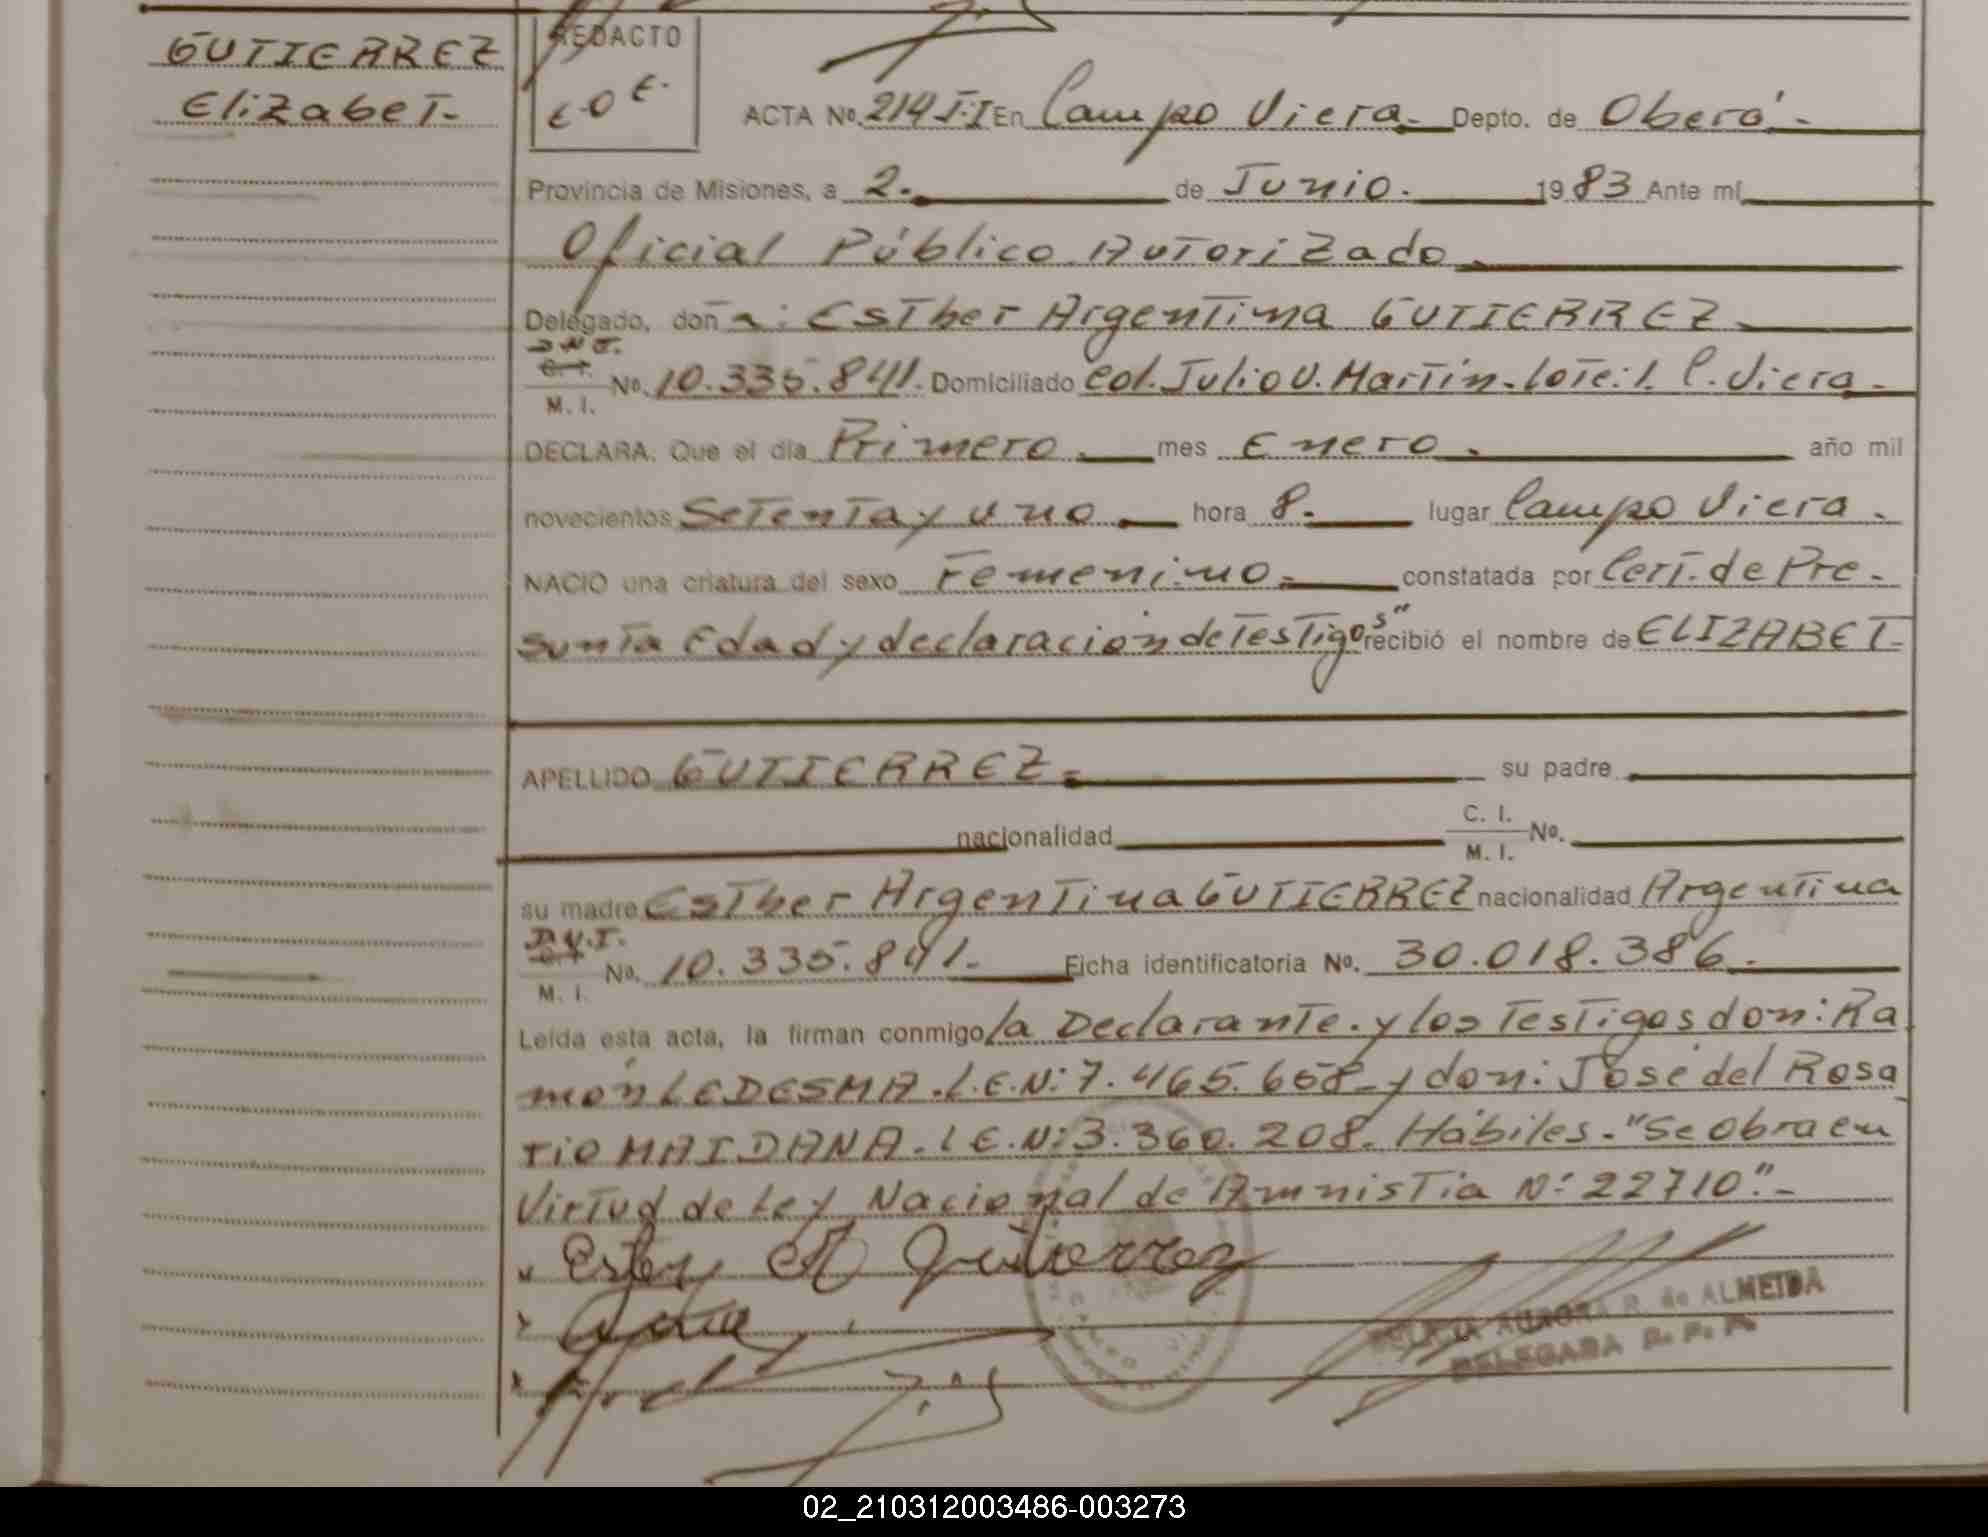 GUTIERREZ
Elizabet.-
REDACTO
ACTA Nº 214 T.I En Campo Viera.- Depto. de Oberá.-
Provincia de Misiones, a 2. de Junio. 1983 Ante mí
Oficial Público Autorizado.
Delegado, don a: Esther Argentina GUTIERREZ.
D.N.I.
C. I.
M. I.
No. 10.335.841. Domiciliado Col. Julio U. Martín. Lote: 1. C. Viera.-
DECLARA: Que el día Primero. mes Enero. año mil
novecientos Setenta y uno. hora 8. lugar Campo Viera.
NACIO una criatura del sexo Femenino.- constatada por Cert. de Pre-
sunta Edad y declaración de Testigos" recibió el nombre de ELIZABET.-
APELLIDO GUTIERREZ. su padre
nacionalidad C. I. M. I. Nº.
su madre Esther Argentina GUTIERREZ nacionalidad Argentina
D.N.I.
C. I.
M. I.
No. 10.335.841.- Ficha identificatoria Nº. 30.018.386.
Leída esta acta, la firman conmigo la Declarante. y los Testigos don: Ra
món LEDESMA. L.E.N: 7.465.658 y don: José del Rosa
rio MAIDANA. L.E.N: 3.360.208. Hábiles.- "Se obra en
Virtud de Ley Nacional de Amnistia N: 22710".-
Ester A Gutierrez
AURORA R. de ALMEIDA
DELEGADA R. P. P.
02_210312003486-003273